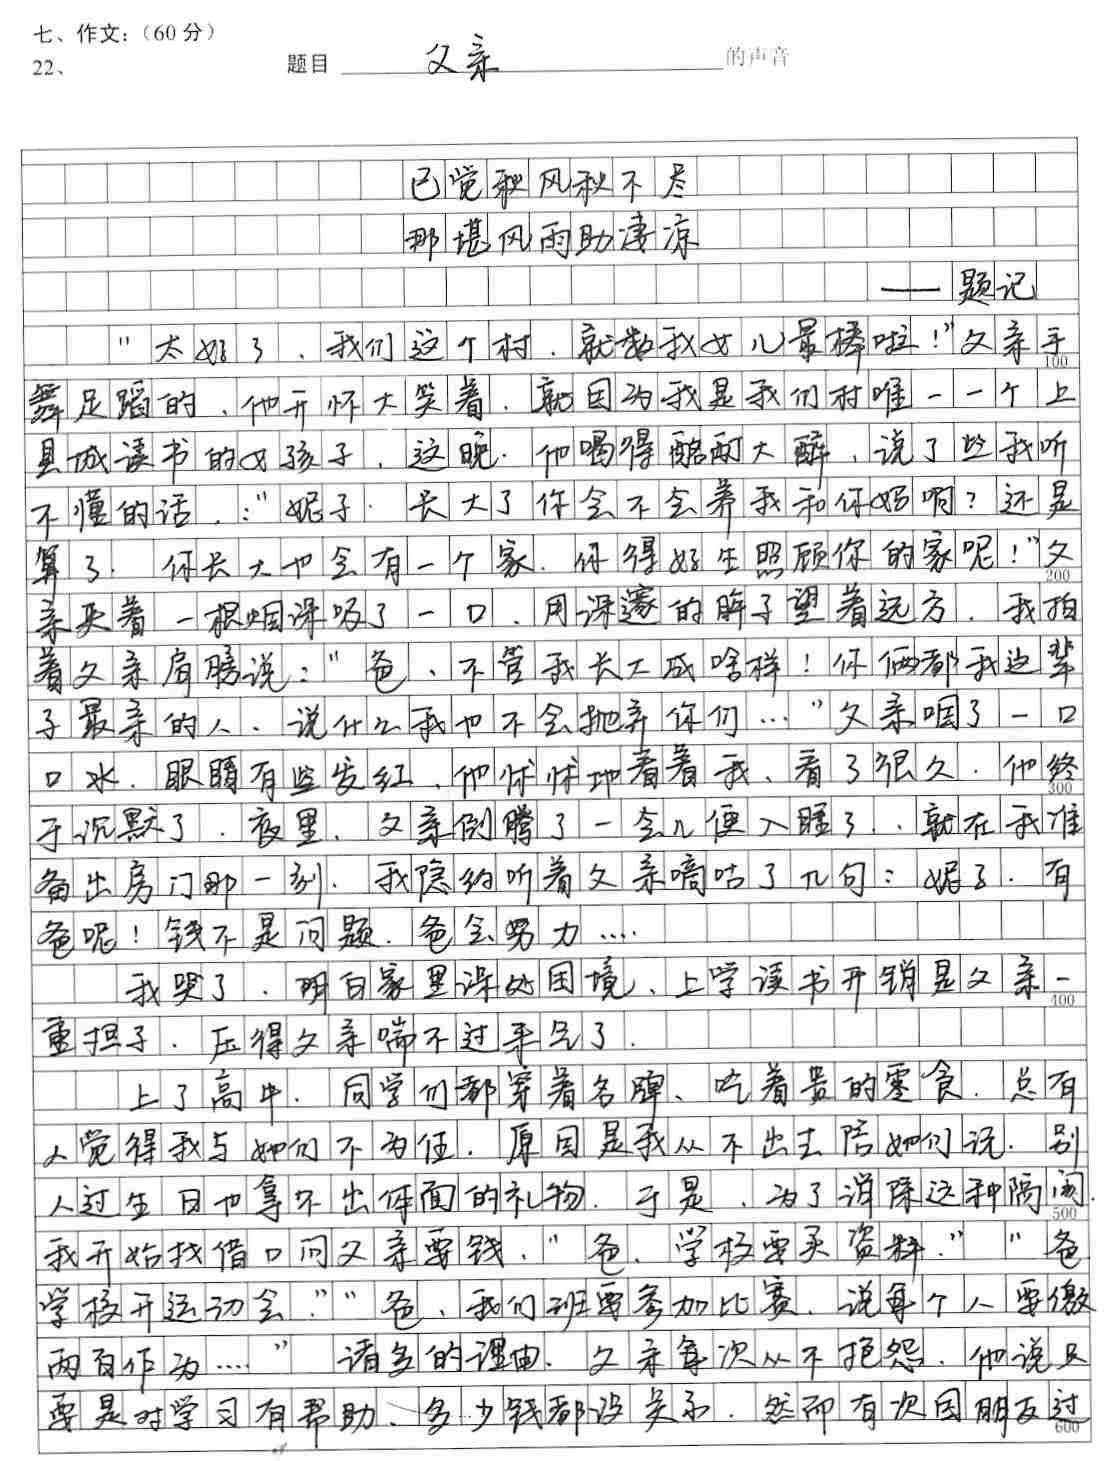 七、作文:（60分）
22、 题目 父亲 的声音
已觉秋风秋不尽
那堪风雨助凄凉
——题记
"太好了，我们这个村，就数我女儿最棒啦！"父亲手
100
舞足蹈的，他开怀大笑着，就因为我是我们村唯一一个上
县城读书的女孩子，这晚，他喝得酩酊大醉，说了些我听
不懂的话，："妮子，长大了你会不会养我和你妈啊？还是
算了，你长大也会有一个家，你得好生照顾你的家呢！"父
200
亲夹着一根烟深吸了一口，用深邃的眸子望着远方，我拍
着父亲肩膀说："爸，不管我长大成啥样！你俩都我这辈
子最亲的人，说什么我也不会抛弃你们…"父亲咽了一口
口水，眼睛有些发红，他怔怔地看着我、看了很久，他终
300
于沉默了，夜里，父亲倒腾了一会儿便入睡了，就在我准
备出房门那一刻，我隐约听着父亲嘀咕了几句：妮子，有
爸呢！钱不是问题，爸会努力……
我哭了，明白家里深处困境，上学读书开销是父亲一
400
重担子，压得父亲喘不过来气了．
上了高中，同学们都穿着名牌、吃着贵的零食，总有
人觉得我与她们不为伍，原因是我从不出去陪她们说，别
人过生日也拿不出体面的礼物，于是，为了消除这种隔阂，
500
我开始找借口问父亲要钱，"爸，学校要买资料．" "爸
学校开运动会．""爸，我们班要参加比赛，说每个人要缴
两百作为……" 诸多的理由，父亲每次从不抱怨，他说只
要是对学习有帮助、多少钱都没关系，然而有次因朋友过
600